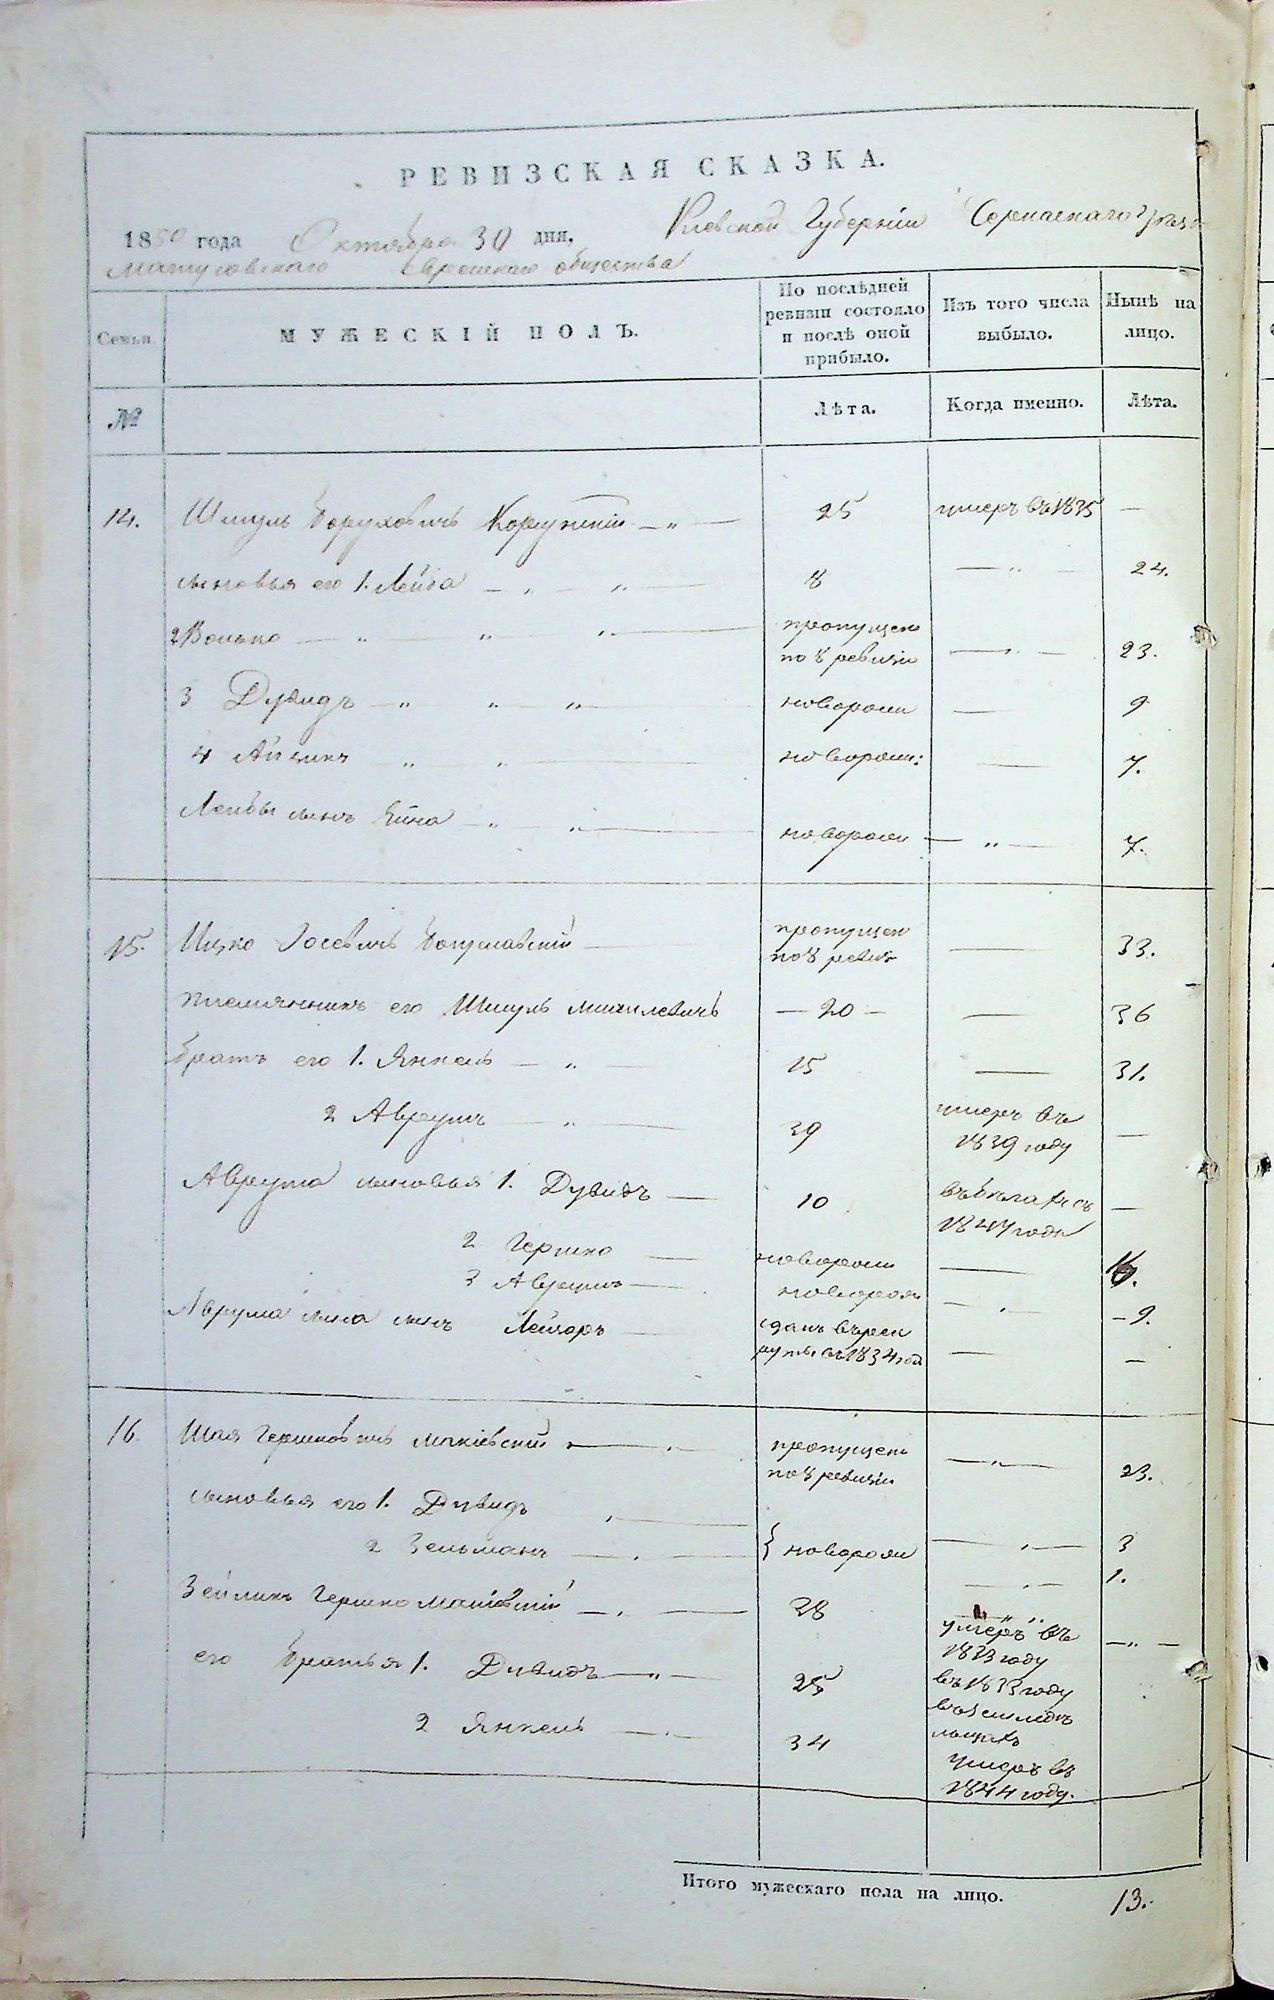 РЕВИЗСКАЯ СКАЗКА.
1850 года Октября 30 дня, Киевской Губерніи уезда
Матусовскаго еврейскаго общества
Семьи.
МУЖЕСКІЙ ПОЛЪ.
По послѣдней ревизіи состояло и послѣ оной прибыло.
Изъ того числа выбыло.
Нынѣ на лицо.
№
Лѣта.
Когда именно.
Лѣта.
14. Шмуль Боруховичъ — „ — 25 умеръ въ 1835 —
сыновья его 1. Лейба — „ — „ — 8 — „ — 24.
2 Волько — „ — „ — „ — пропущен по 8 ревизіи — „ — 23.
3 Дувидъ — „ „ „ — новорож — 9
4 Айзикъ „ „ — новорож: — 7.
Лейбы сынъ — „ — „ — новорож — „ — 7.
15. Ицко Іосевичъ Богуславскій — пропущен по 8 ревиз — 33.
племянникъ его Шмуль — 20 — — 36
братъ его 1. Янкель — „ — 15 — 31.
2 Аврумъ — „ — 39 умеръ въ 1839 году —
Аврума сыновья 1. Дувидъ — 10 въ бегахъ съ 1847 года —
2 Гершко — новорож — 16.
3 Аврумъ — новорож — „ — – 9.
Аврума сына сынъ Лейзоръ — сданъ въ рек руты въ 1834 год — —
16 Шая Гершковичъ — „ — пропущен по 8 ревизіи — „ — 23.
сыновья его 1. Дувидъ „ —
2 Зельманъ — „ — { новорож — „ — 3
— „ — 1.
Зейликъ Гершко — „ — 28 умеръ въ 1833 году — „ —
его братья 1. Дувидъ — „ — 25 въ 1833 году
2 Янкель — „ — 34 умеръ въ 1844 году.
Итого мужескаго пола на лицо. 13.